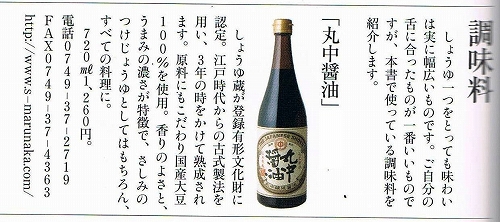 調味料
しょうゆ一つをとっても味わい
は実に幅広いものです。ご自分の
舌に合ったものが一番いいもので
すが、本書で使っている調味料を
紹介します。
「丸中醤油」
しょうゆ蔵が登録有形文化財に
認定。江戸時代からの古式製法を
用い、3年の時をかけて熟成され
ます。原料にもこだわり国産大豆
100%を使用。香りのよさと、
うまみの濃さが特徴で、さしみの
つけじょうゆとしてはもちろん、
すべての料理に。
720㎖1,260円。
電話0749-37-2719
FAX0749-37-4363
http://www.s-marunaka.com/
丸中
醤油